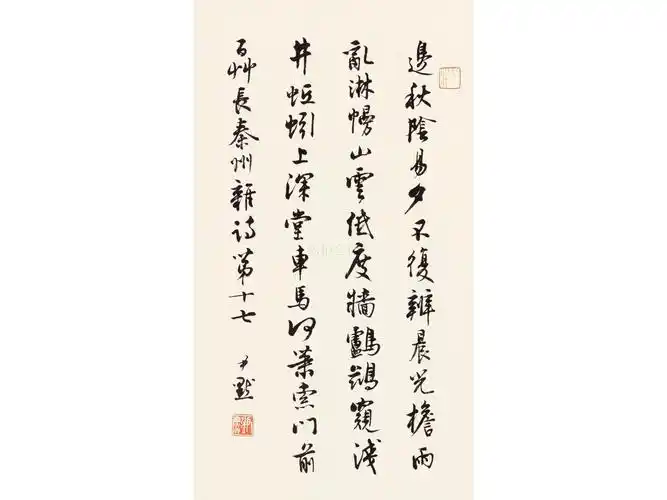 邊秋陰易夕不復辨晨光檐雨
亂淋幔山雲低度牆鸕鷀窺淺
井蚯蚓上深堂車馬何蕭索門前
百艸長秦州雜詩第十七 尹默